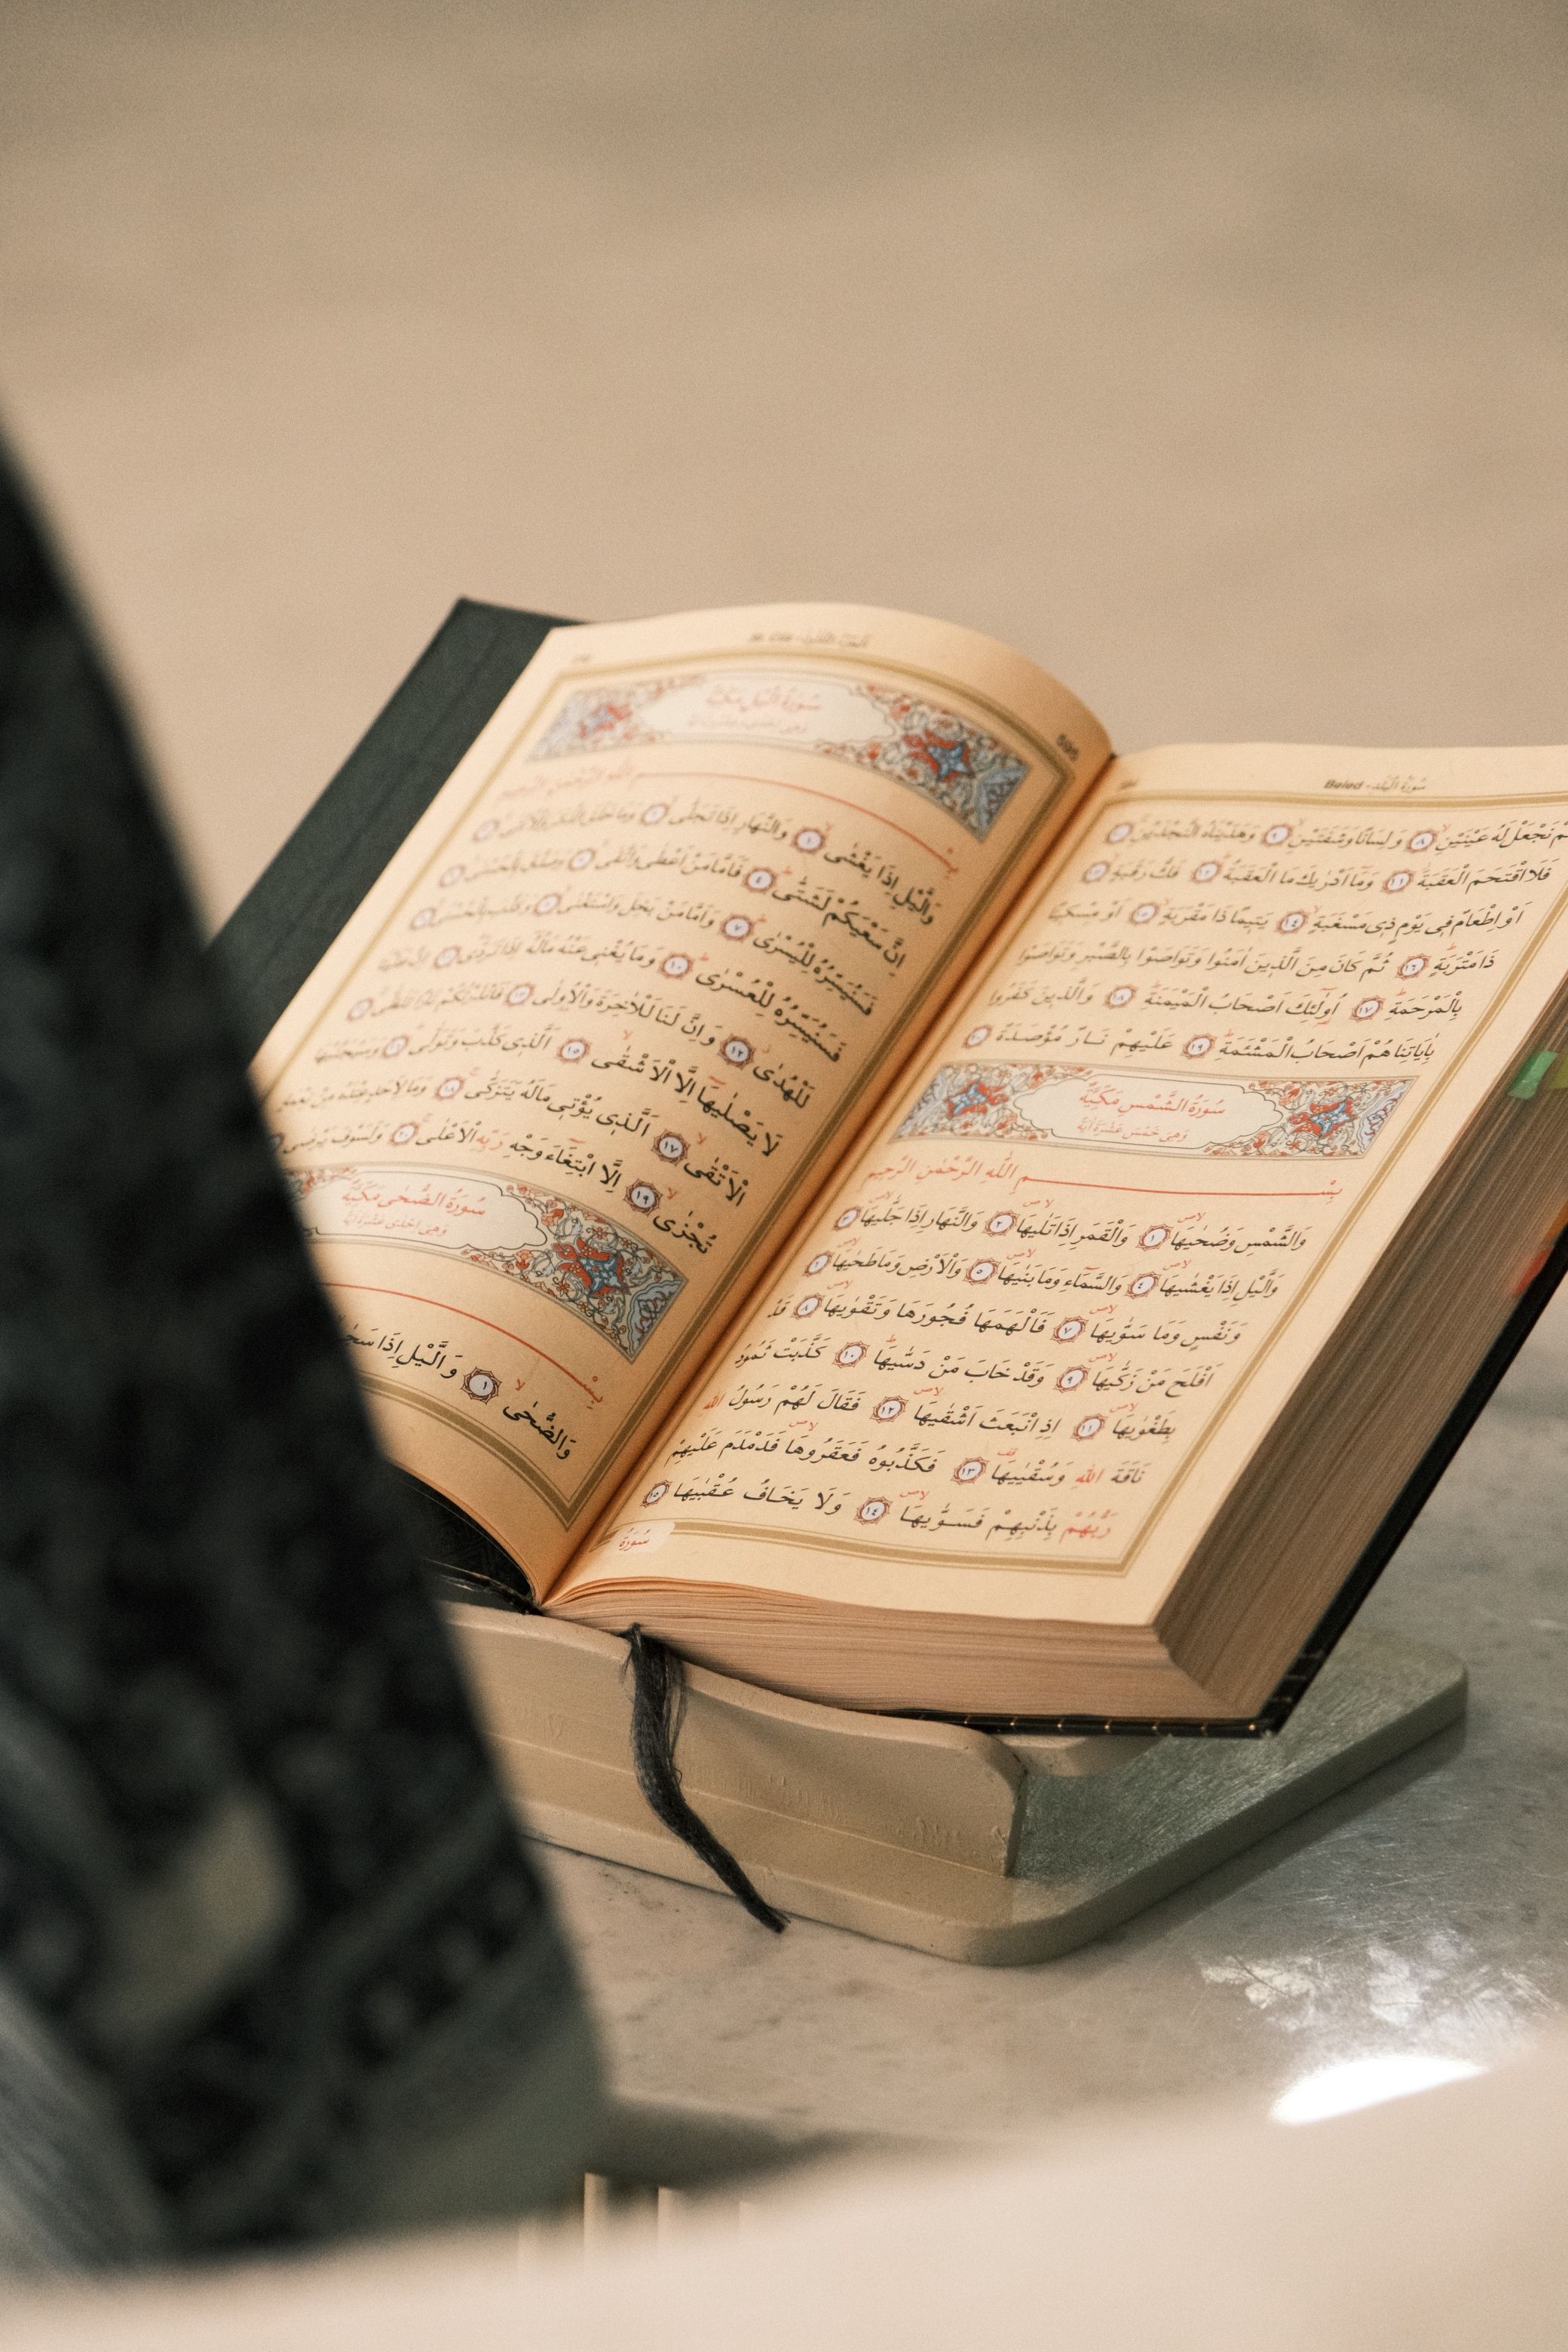 Beled - سُورَةُ الْبَلَدِ
نَجْعَلْ لَهُ عَيْنَيْنِ ۝٨ وَلِسَانًا وَشَفَتَيْنِ ۝٩ وَهَدَيْنَاهُ النَّجْدَيْنِ ۝١٠
فَلَا اقْتَحَمَ الْعَقَبَةَ ۝١١ وَمَا اَدْرٰيكَ مَا الْعَقَبَةُ ۝١٢ فَكُّ رَقَبَةٍ ۝١٣
اَوْ اِطْعَامٌ فِى يَوْمٍ ذِى مَسْغَبَةٍ ۝١٤ يَتِيمًا ذَا مَقْرَبَةٍ ۝١٥ اَوْ مِسْكِينًا
ذَا مَتْرَبَةٍ ۝١٦ ثُمَّ كَانَ مِنَ الَّذِينَ اٰمَنُوا وَتَوَاصَوْا بِالصَّبْرِ وَتَوَاصَوْا
بِالْمَرْحَمَةِ ۝١٧ اُولٰئِكَ اَصْحَابُ الْمَيْمَنَةِ ۝١٨ وَالَّذِينَ كَفَرُوا
بِاٰيَاتِنَا هُمْ اَصْحَابُ الْمَشْئَمَةِ ۝١٩ عَلَيْهِمْ نَارٌ مُؤْصَدَةٌ ۝٢٠
سُورَةُ الشَّمْسِ مَكِّيَّةٌ
وَهِىَ خَمْسَ عَشْرَةَ اٰيَةً
بِسْمِ اللّٰهِ الرَّحْمٰنِ الرَّحِيمِ
وَالشَّمْسِ وَضُحٰيهَا ۝١ وَالْقَمَرِ اِذَا تَلٰيهَا ۝٢ وَالنَّهَارِ اِذَا جَلّٰيهَا ۝٣
وَالَّيْلِ اِذَا يَغْشٰيهَا ۝٤ وَالسَّمَاءِ وَمَا بَنٰيهَا ۝٥ وَالْاَرْضِ وَمَا طَحٰيهَا ۝٦
وَنَفْسٍ وَمَا سَوّٰيهَا ۝٧ فَاَلْهَمَهَا فُجُورَهَا وَتَقْوٰيهَا ۝٨ قَدْ
اَفْلَحَ مَنْ زَكّٰيهَا ۝٩ وَقَدْ خَابَ مَنْ دَسّٰيهَا ۝١٠ كَذَّبَتْ ثَمُودُ
بِطَغْوٰيهَا ۝١١ اِذِ انْبَعَثَ اَشْقٰيهَا ۝١٢ فَقَالَ لَهُمْ رَسُولُ اللّٰهِ
نَاقَةَ اللّٰهِ وَسُقْيٰيهَا ۝١٣ فَكَذَّبُوهُ فَعَقَرُوهَا فَدَمْدَمَ عَلَيْهِمْ
رَبُّهُمْ بِذَنْبِهِمْ فَسَوّٰيهَا ۝١٤ وَلَا يَخَافُ عُقْبٰيهَا ۝١٥
سُورَةُ
سُورَةُ الَّيْلِ مَكِّيَّةٌ
وَالَّيْلِ اِذَا يَغْشٰى ۝١ وَالنَّهَارِ اِذَا تَجَلّٰى ۝٢ وَمَا خَلَقَ الذَّكَرَ وَالْاُنْثٰى ۝٣
اِنَّ سَعْيَكُمْ لَشَتّٰى ۝٤ فَاَمَّا مَنْ اَعْطٰى وَاتَّقٰى ۝٥ وَصَدَّقَ بِالْحُسْنٰى ۝٦
فَسَنُيَسِّرُهُ لِلْيُسْرٰى ۝٧ وَاَمَّا مَنْ بَخِلَ وَاسْتَغْنٰى ۝٨ وَكَذَّبَ بِالْحُسْنٰى ۝٩
فَسَنُيَسِّرُهُ لِلْعُسْرٰى ۝١٠ وَمَا يُغْنِى عَنْهُ مَالُهُ اِذَا تَرَدّٰى ۝١١ اِنَّ عَلَيْنَا
لَلْهُدٰى ۝١٢ وَاِنَّ لَنَا لَلْاٰخِرَةَ وَالْاُولٰى ۝١٣ فَاَنْذَرْتُكُمْ نَارًا تَلَظّٰى ۝١٤
لَا يَصْلٰيهَا اِلَّا الْاَشْقٰى ۝١٥ اَلَّذِى كَذَّبَ وَتَوَلّٰى ۝١٦ وَسَيُجَنَّبُهَا
الْاَتْقٰى ۝١٧ اَلَّذِى يُؤْتِى مَالَهُ يَتَزَكّٰى ۝١٨ وَمَا لِاَحَدٍ عِنْدَهُ مِنْ نِعْمَةٍ
تُجْزٰى ۝١٩ اِلَّا ابْتِغَاءَ وَجْهِ رَبِّهِ الْاَعْلٰى ۝٢٠ وَلَسَوْفَ يَرْضٰى
سُورَةُ الضُّحٰى مَكِّيَّةٌ
وَهِىَ اِحْدٰى عَشْرَةَ اٰيَةً
بِسْ
وَالضُّحٰى ۝١ وَالَّيْلِ اِذَا سَجٰى